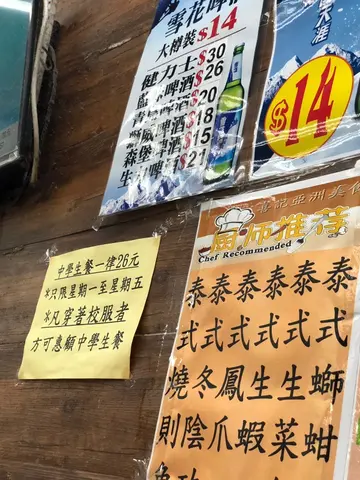 雪花啤
大樽裝$14
健力士$30
藍 啤酒$26
啤酒$20
威啤酒$18
森 堡啤酒$15
生 啤酒$21
$14
中學生餐一律26元
*只限星期一至星期五
*凡穿著校服者
方可惠顧中學生餐
喜記亞洲美
廚師推荐
Chef Recommended
泰泰泰泰泰泰
式式式式式式
燒冬鳳生生螄
則陰爪蝦菜蚶